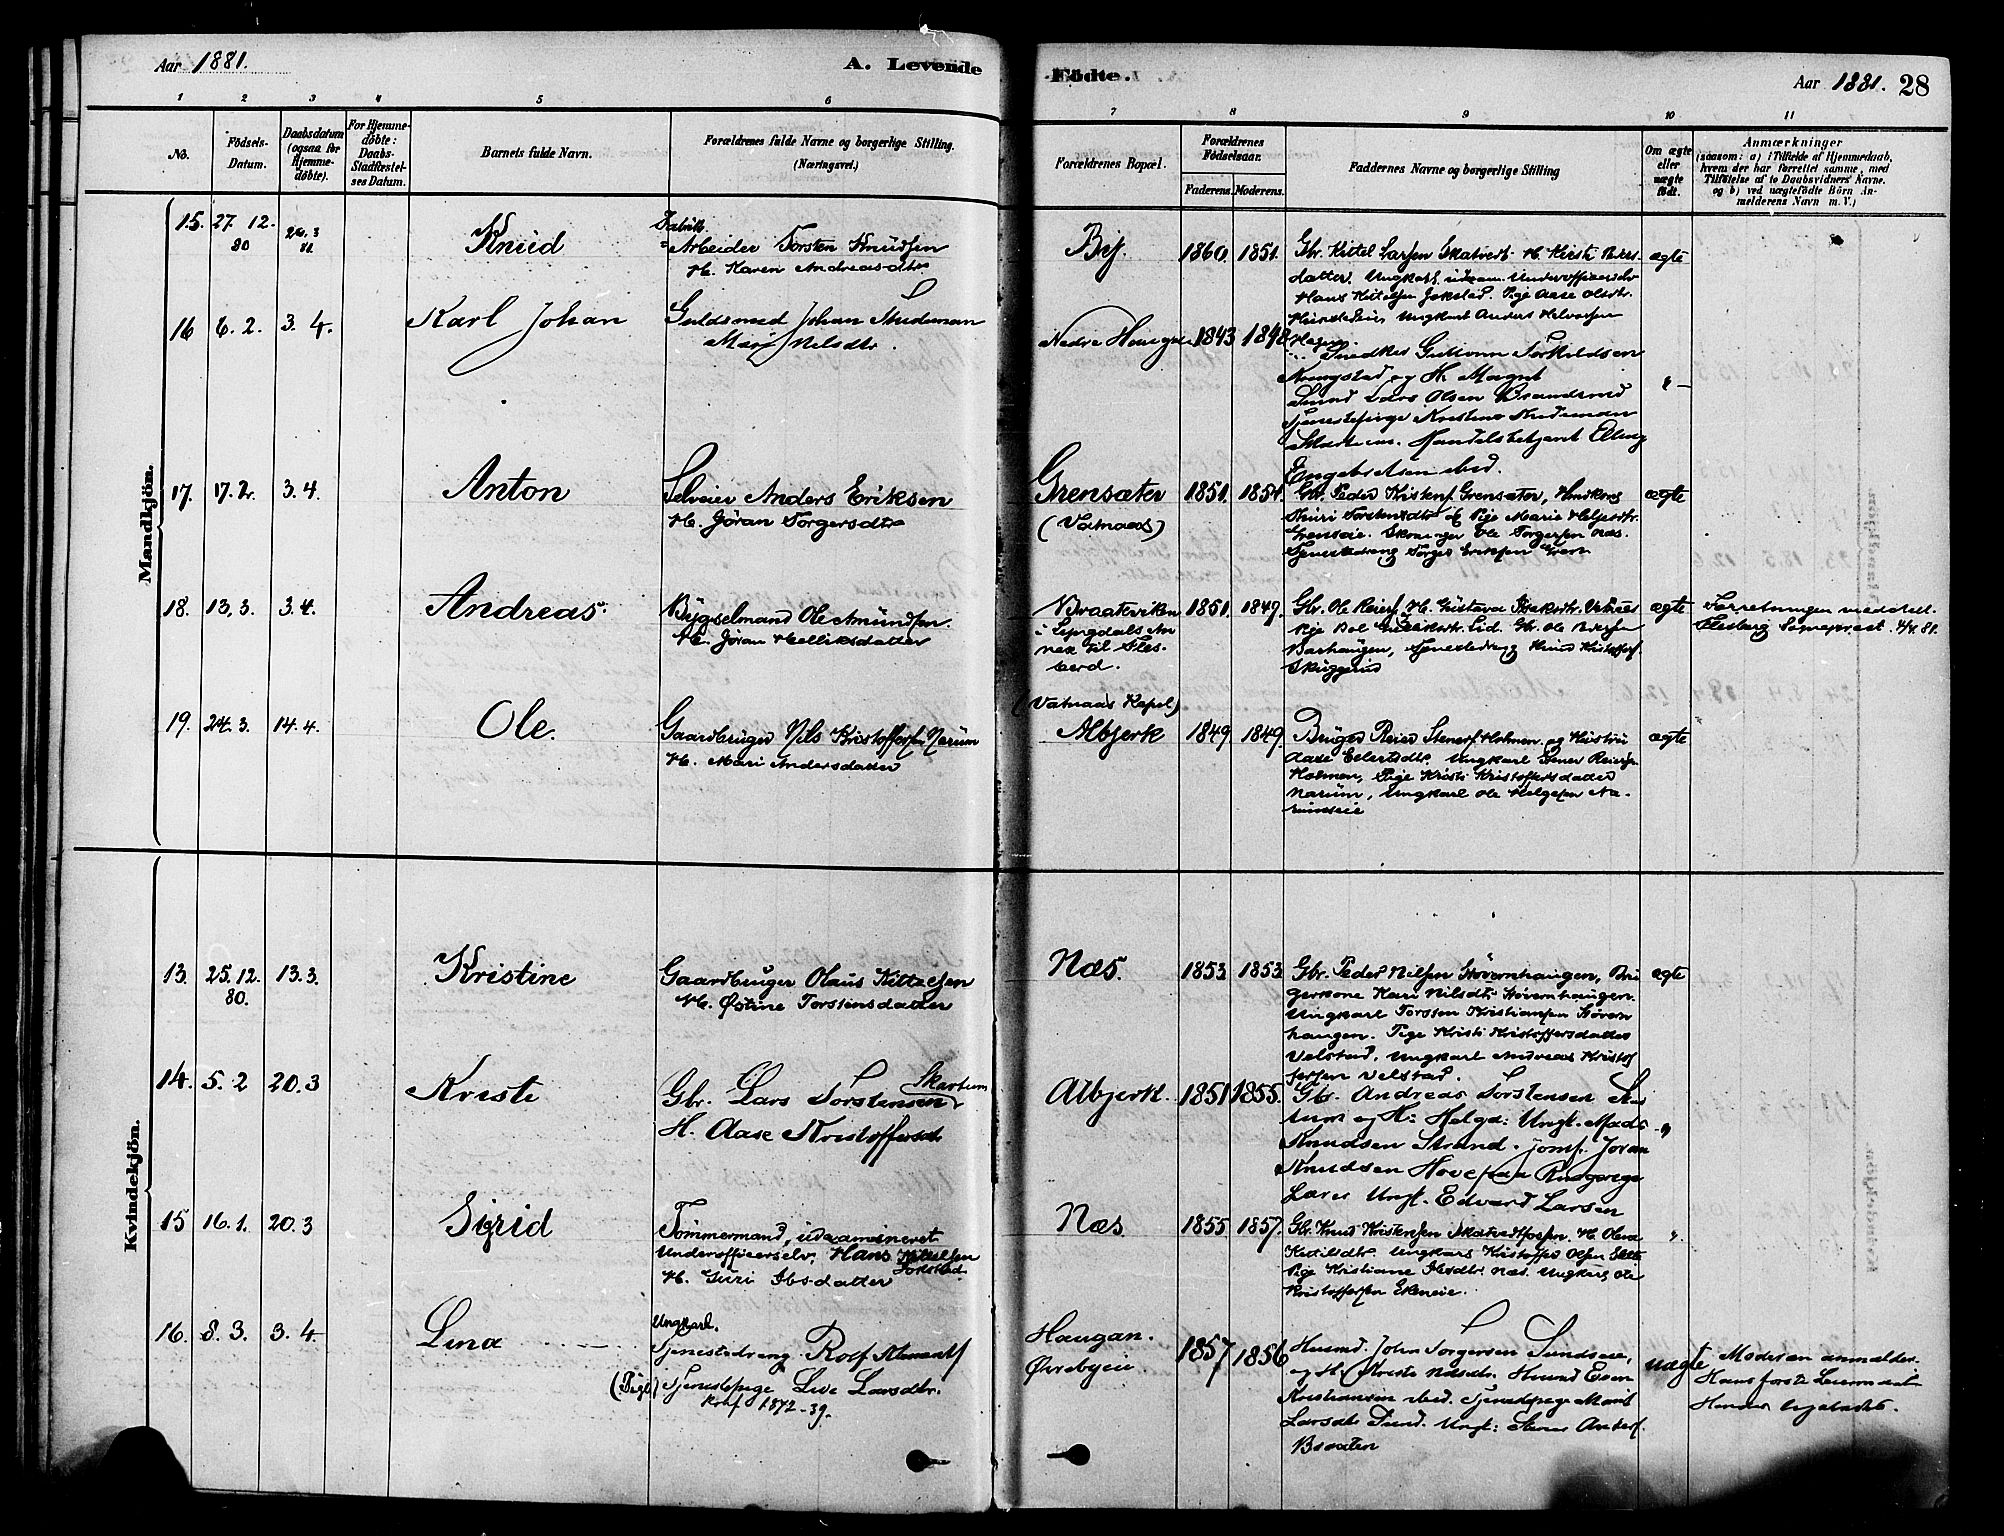 Aar 1881.
A. Levende
Fødte.
Aar 1881. 28
1 2 3 4 5 6
7 8 9 10 11
No.
Fødsels-Datum.
Daabsdatum (ogsaa for Hjemmedøbte).
For Hjemmedøbte: Daabs-Stadfæstelses Datum.
Barnets fulde Navn.
Forældrenes fulde Navne og borgerlige Stilling. (Næringsvei.)
Forældrenes Bopæl.
Forældrenes Fødselsaar.
Faderens. Moderens.
Faddernes Navne og borgerlige Stilling
Om ægte eller uægte født.
Anmærkninger
(saasom: a) i Tilfælde af Hjemmedaab,
hvem der har forrettet samme, med
Tilføielse af to Daabsvidners Navne.
og b) ved uægtefødte Børn An-
melderens Navn m. V.)
Mandkjön.
15. 27. 12. 80
Knud
Fabrik
Arbeider Torsten Knudsen
H. Karen Andreasdtr
1860 1851.
Gbr. Kittel Larsen Skatvedt H. Kirsti
datter. Ungkarl
Hans Kittelsen Jokstad. Pige Aase Olsdtr.
Ungkarl Anders
ægte
16 6. 2. 3. 4.
Karl Johan
Guldsmed Johan Studeman
Mari Nilsdtr.
Nedre 1843 1848
Snedker Guttorm Torkildsen
og H. Margit
Lars Olsen
Tjenestepige Kristine Studeman
Handelsbetjent Elling
Engebretsen ibid.
17. 17. 2. 3. 4.
Anton
Selveier Anders Eriksen
H. Jøran Torgersdtr
Grensæter
(Vatnaas)
1851. 1854.
Gbr. Peder Kristens. Grensæter,
Pige Marie
Ole Torgersen Næs.
Tjenestedreng Torger Eriksen
ægte
18. 13. 3. 3. 4.
Andreas.
Bygselmand Ole Amundsen.
H. Jøran Helliksdatter
Braatviken
i Lyngdals An
nex til Fles
berd.
1851. 1849.
Gbr. Ole Reiers. H. Gustava
Lid. Gbr. Ole
ægte
Forretningen meddelt
Flesberg Sogneprest. 4/4. 81.
19. 24. 3. 14. 4.
Ole.
Gaardbruger Nils Kristoffersen Narum
H. Mari Andersdatter
(Vatnaas Kapel)
Albjerk 1849 1849.
Bruger Reier Steners. Holmen og Hustru
Aase Eilertsdtr. Ungkarl Stener Reiers.
Holmen, Pige Kristi Kristoffersdatter
Narum, Ungkarl Ole Helgesen Na-
rumseie
ægte
Kvindekjön.
13. 25. 12. 80. 13. 3.
Kristine
Gaardbruger Olaus Kittelsen
H. Østine Torstensdatter
Næs. 1853 1853
Gbr. Peder Nilsen Støvernhaugen, Bru
gerkone Kari Nilsdtr. Støvernhaugen.
Ungkarl Torsten Kristiansen Støvern
haugen. Pige Kristi Kristoffersdatter
Velstad. Ungkarl Andreas Kristof
fersen Velstad.
ægte
14. 5. 2 20. 3
Kristi
Gbr. Lars Torstensen Skartum
H. Aase Kristoffersdt
Albjerk. 1851 1855.
Gbr. Andreas Torstensen
og H. Helga: Ungk. Mads
Knudsen Strand. Jomf. Joran
Knudsen Hove
Ungk. Edvard Larsen
15 16. 1. 20. 3
Sigrid
Tømmermand, udexamineret
Underofficerselv. Hans Kittelsen
Jokstad
H. Guri Ibsdatter
Næs. 1855 1857.
Gbr. Knud Kristensen Skatvedtfossen. H. Olina
Kittilsdtr. Ungkarl Kristoffer Olsen
Pige Kristiane Ibsdtr. Næs. Ungkarl Ole
Kristoffersen Ekeneie.
16. 8. 3. 3. 4.
Lina
Ungkarl.
Tjenestedreng Rolf
(Pige) Tjenestepige Live Larsdtr.
Konf 1872 - 39.
Haugan.
Øvrebyeie
1857 1856
Husmd. John Torgersen Sundseie,
og H. Kristi Nilsdtr. Husmd Even
Kristiansen ibid. Tjenestpige Marit
Larsdtr Sund. Ungk: Stener Anders.
Braaten
uægte
Moderen anmelder.
Hans første Leiermaal
Hendes ligeledes.